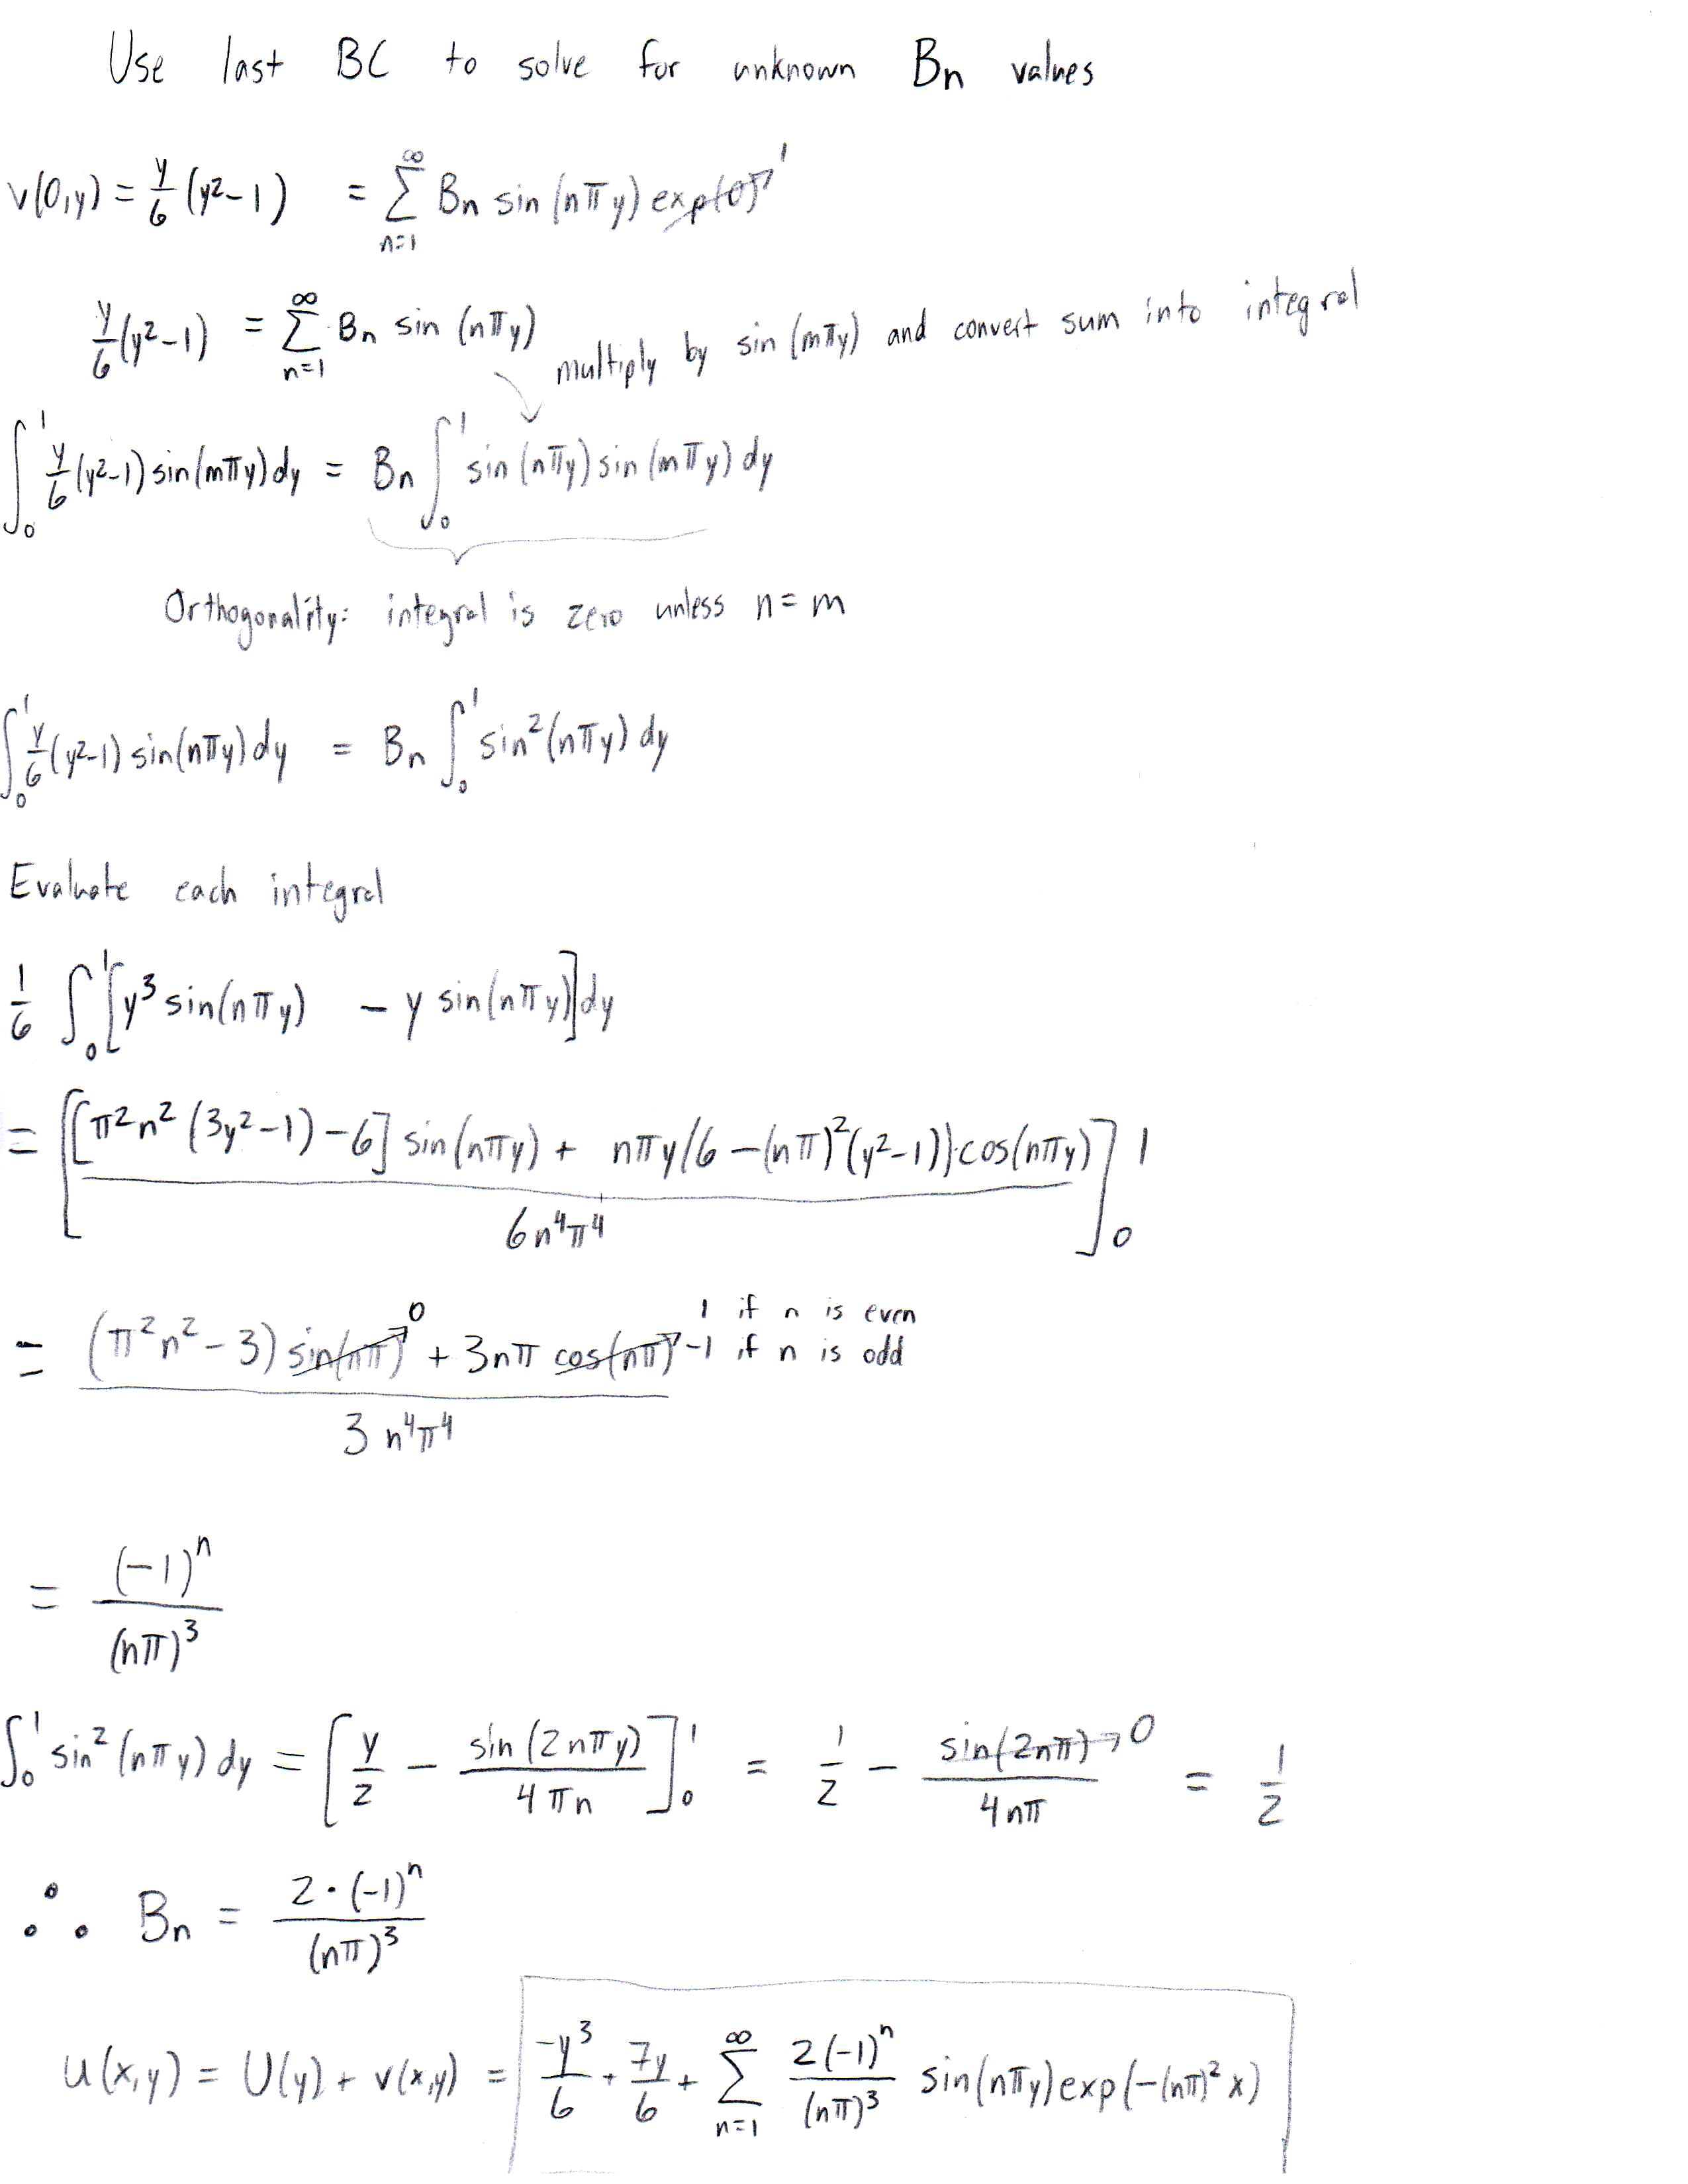 Use last BC to solve for unknown Bn values
v(0,y) = y/6 (y²-1) = ∑_{n=1}^{∞} Bn sin(nπy) exp(0)→1
y/6 (y²-1) = ∑_{n=1}^{∞} Bn sin(nπy)
multiply by sin(mπy) and convert sum into integral
∫₀¹ y/6 (y²-1) sin(mπy) dy = Bn ∫₀¹ sin(nπy) sin(mπy) dy
Orthogonality: integral is zero unless n=m
∫₀¹ y/6 (y²-1) sin(nπy) dy = Bn ∫₀¹ sin²(nπy) dy
Evaluate each integral
1/6 ∫₀¹ [y³ sin(nπy) - y sin(nπy)] dy
= [ ([π²n²(3y²-1)-6] sin(nπy) + nπy(6-(nπ)²(y²-1)) cos(nπy)) / 6n⁴π⁴ ]₀¹
= ((π²n²-3) sin(nπ)→0 + 3nπ cos(nπ)→ 1 if n is even
-1 if n is odd) / 3n⁴π⁴
= (-1)ⁿ / (nπ)³
∫₀¹ sin²(nπy) dy = [ y/2 - sin(2nπy)/4πn ]₀¹ = 1/2 - sin(2nπ)→0 / 4nπ = 1/2
∴ Bn = 2·(-1)ⁿ / (nπ)³
u(x,y) = U(y) + v(x,y) = -y³/6 + 7y/6 + ∑_{n=1}^{∞} 2(-1)ⁿ/(nπ)³ sin(nπy) exp(-(nπ)²x)